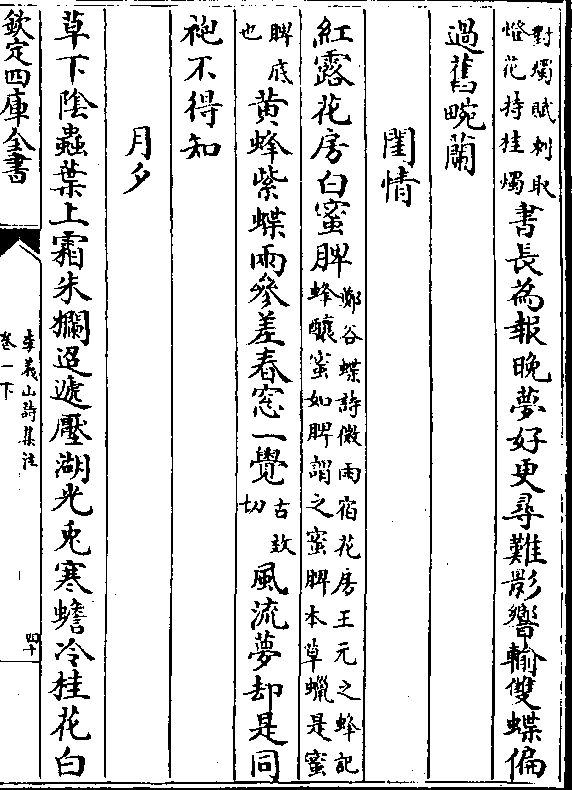 對燭賦刺取燈花持桂燭書長為報晚夢好更尋難影響輸雙蝶偏
過舊畹蘭
閨情
紅露花房白蜜脾鄭谷蝶詩微雨宿花房王元之蜂記蜂釀蜜如脾謂之蜜脾本草蠟是蜜
脾底也黄蜂紫蝶兩參差春窓一覺古效切風流夢却是同
袍不得知
月夕
草下陰蟲葉上霜朱欄迢遞壓湖光兎寒蟾冷桂花白
欽定四庫全書
李義山詩集注
卷一下
四十